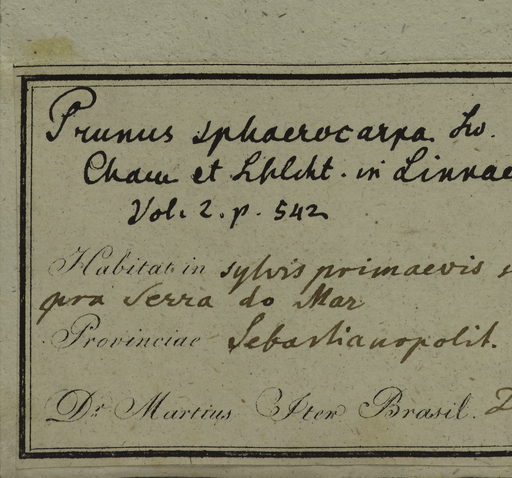 Prunus sphaerocarpa Sw.
Cham et Schlcht. in Linnae
Vol. 2. p. 542
Habitat in sylvis primaevis s
pra Serra do Mar
Provinciae Sebastianopolit.
Dr. Martius Iter Brasil.